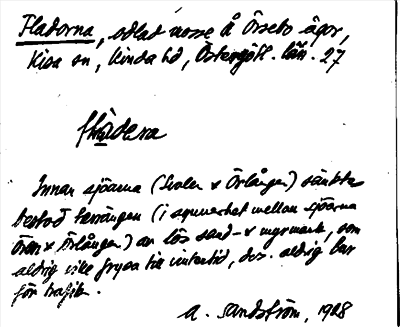 Fladorna, odlad mosse å Örsebo ägor,
Kisa sn, Kinda hd, Östergötl. län. 27
Innan sjöarna (Svalen & Örlången) sänktes
bestod terrängen (i synnerhet mellan sjöarna
Ören & Örlången) av lös sand- & myrmark, som
aldrig ville frysa till vintertid, dvs. aldrig bar
för trafik.
A. Sandström, 1928